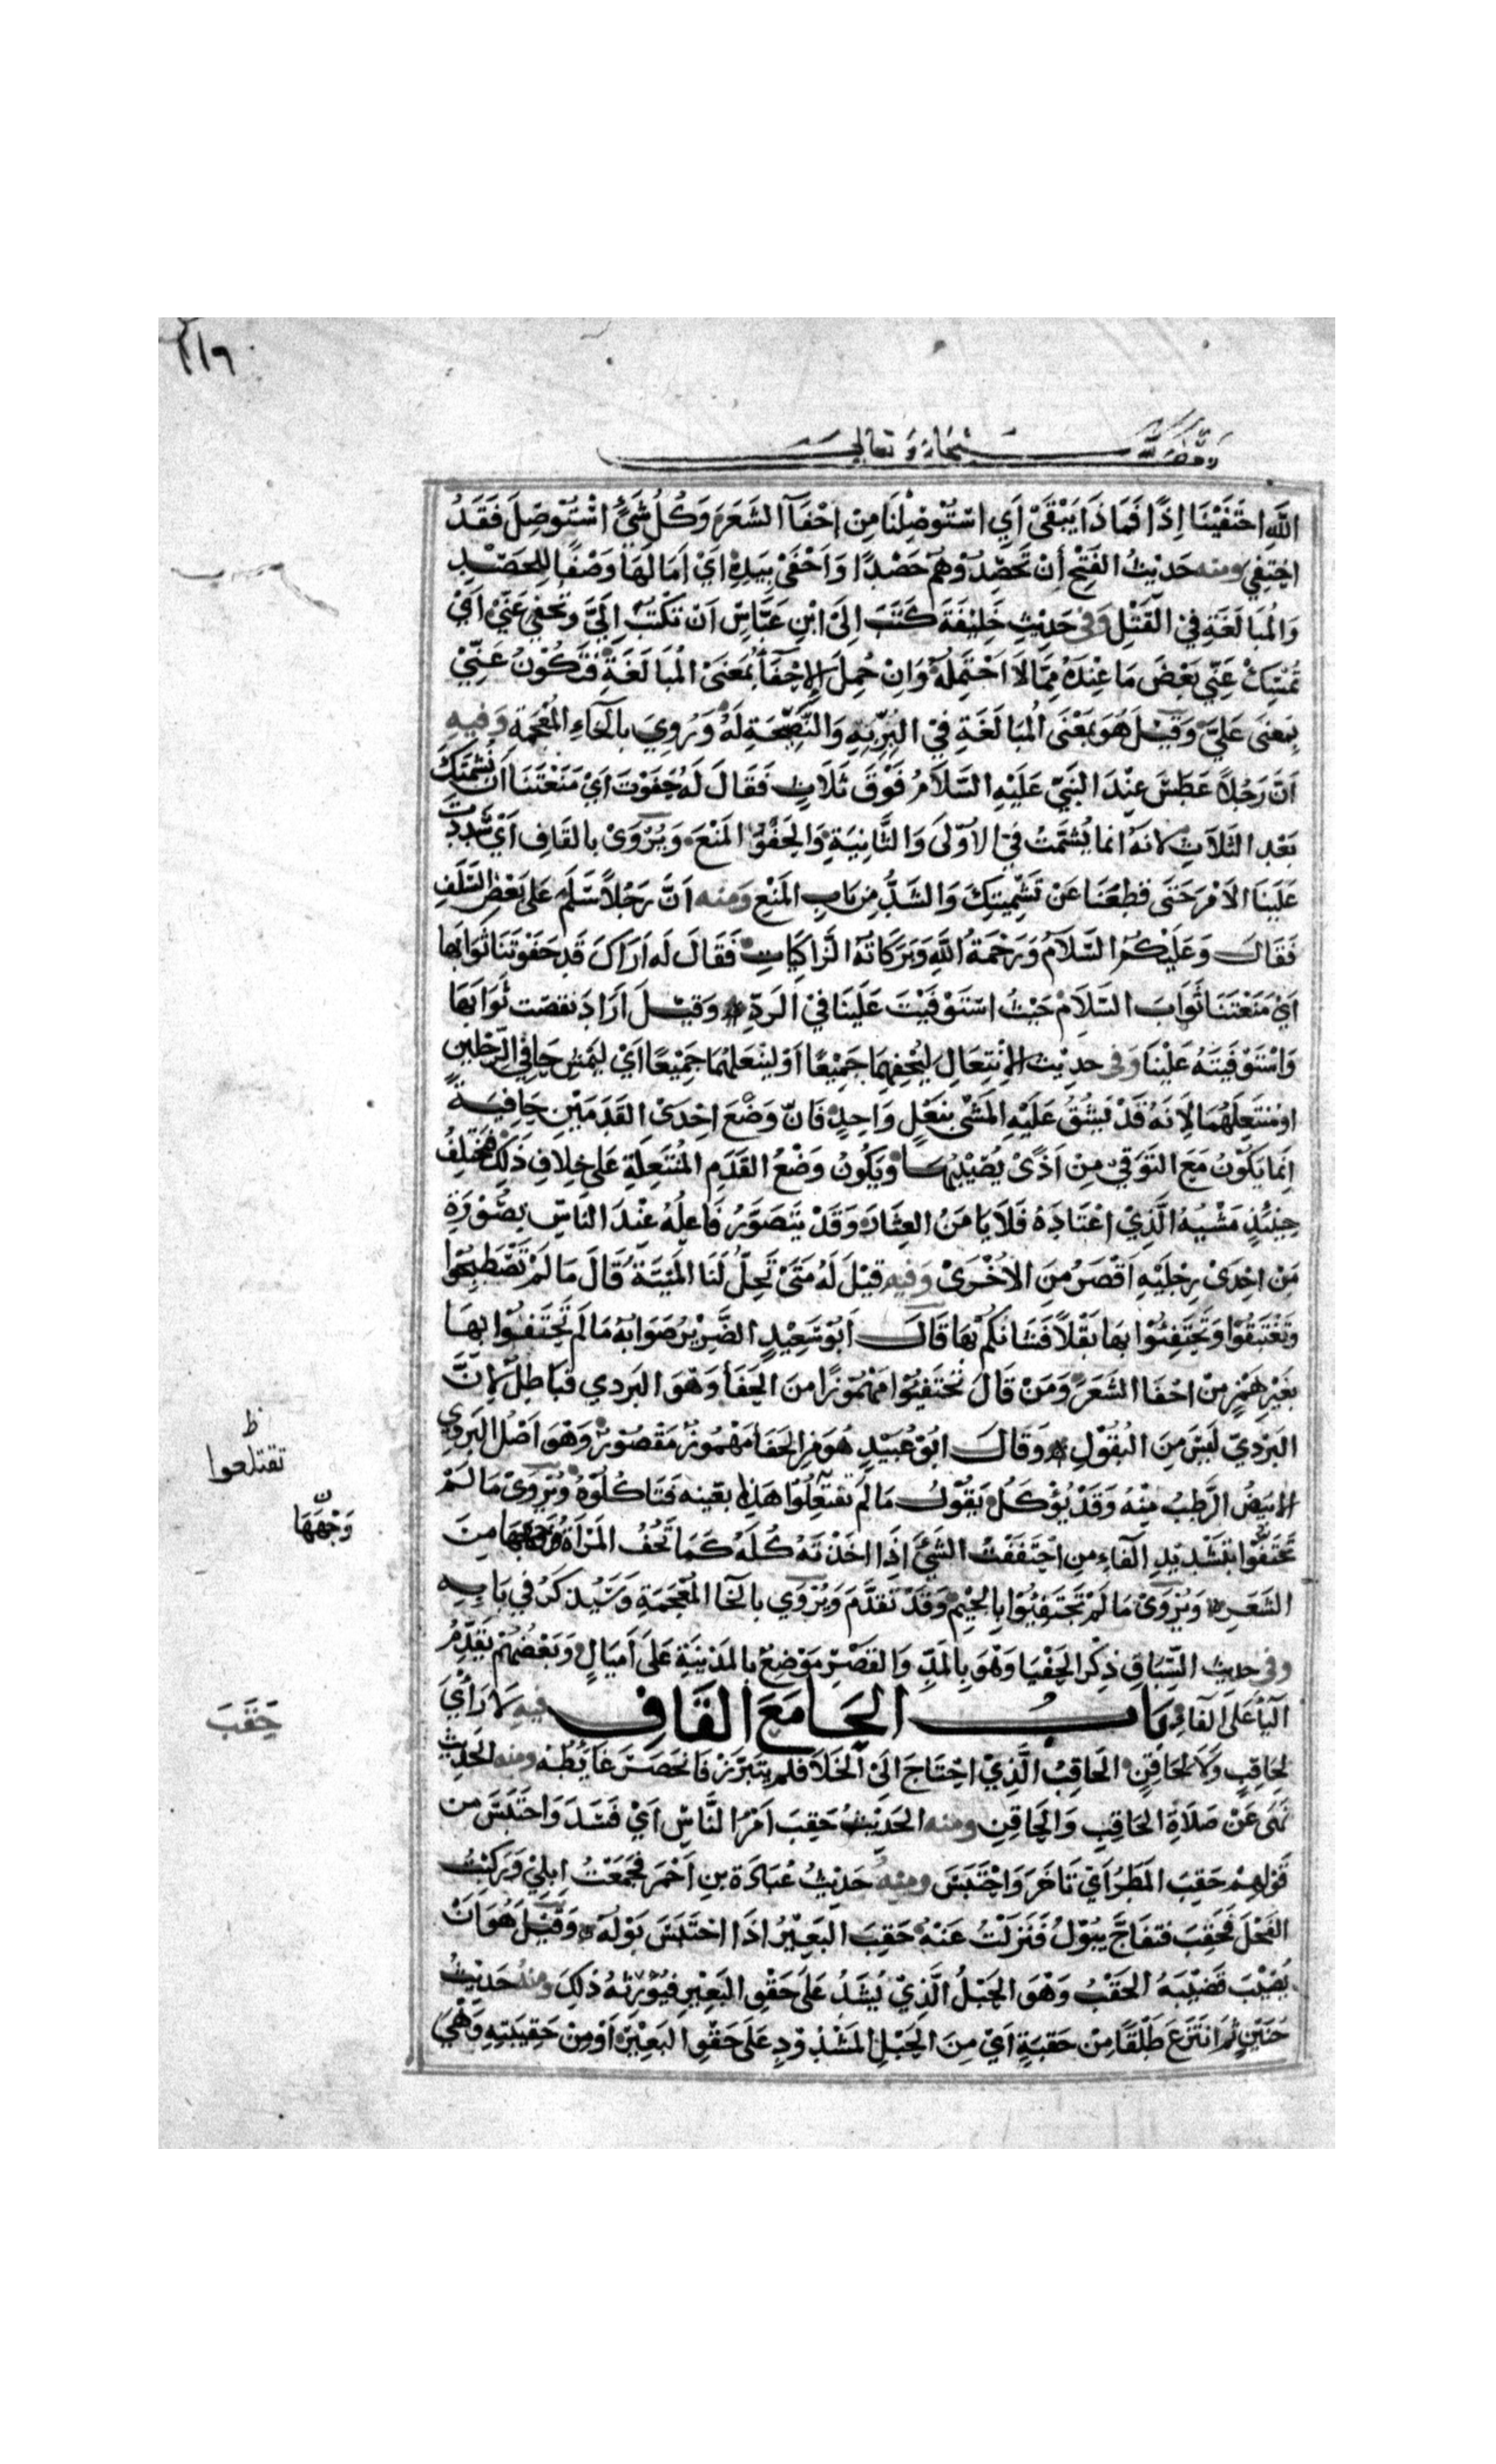 ١١٩
وقف لله سبحانه وتعالى
اللهِ احْتَفَيْنَا اِذًا فَمَاذَا يَبْقَىْ أَي اسْتُؤصِلْنَا مِنْ احْفَآ الشَعَرَ وَكُلُ شَىْءٍ اسْتُوْصِلَ فَقَدُ
احْتِفِي ومنه حَديْثُ الفَتْحِ أَنْ تَحْصِدُوْهُمْ حَصْدًا وَاَحْفَىْ بِيَدِهِ اَيْ اَمَالَهَا وَصْفًا لِلحَصْدِ
وَالمُبَالَغَةِ فِي القَتْلِ وَفى حَدِيْثِ خَلِيْفَةَ كَتَبَ اِلَىْ ابْنِ عَبَّاسٍ اَنْ تَكْتُبَ اِلَيَّ وَتُحْفِي عَنِّيْ اَيْ
تُمْسِكَ عَنِّي بَعْضَ مَا عِنْدَهُ مِمَّا لاَ اَحْتَمِلُهُ وَاِنْ حُمِلَ الاِحْفَآ بمَعْنَىْ المُبَالَغَةِ فَتَكُوْنُ عَنِّيْ
بِمَعنَى عَلَيَّ وَقِيْلَ هُوَ بمَعْنَى المُبَالَغَةِ فِيْ البِرِّبِهِ وَالنَّصِيْحَةِ لَهُ وَرُوِيَ بالخَاءِ المُعْجَمَةِ وَفيهِ
اَنَّ رَجُلاً عَطَسَ عِنْدَ النَبِيّ عَلَيْهِ السَّلاَمُ فَوْقَ ثَلاَثٍ فَقَالَ لَهُ حَفَوْتَ اَيْ مَنَعْتَنَا اَن نُشَمِّتَكَ
بَعْدَ الثَلاَثِ لانَهُ انما يُشَمَّتُ فِيْ الاُوْلَى وَالثَّانِيَةِ وَالحَفْوُ المَنْعُ وَيُرْوَىْ بالقَافِ اَيْ شَدَدْتَ
عَلَيْنَا الاَمْرَ حَتَى قطِعْنَا عَنْ تَشْمِيْتِكَ وَالشَدُّ مِنْ بَابِ المَنْعِ وَمنه اَنَّ رَجُلاً سَلَّمَ عَلَى بَعْضِ السَّلَفِ
فَقَالَ وَعَلَيْكُمُ السَّلاَمُ وَرَحْمَةُ اللهِ وَبَرَكَاتُهُ الزَاكِيَاتِ فَقَالَ لَه اَرَاكَ قَد حَفَوْتَنَا ثَوَابَها
اَيْ مَنَعْتَنَا ثَوَابَ السَّلاَمِ حَيْثُ اسْتَوْفَيْتَ عَلَيْنَا فِيْ الرَدِّ وَقِيْلَ اَرَادَ نقصْتَ ثَوَابَهَا
وَاسْتَوْفَيْتَهُ عَلَيْنَا وَفى حدِيْث الاِنْتِعَالِ لِيُحْفِهِمَا جَمِيْعًا اَوْ لِيُنْعِلْهُمَا جَمِيْعًا اَيْ لِيَمْشِ حَافِيْ الرِّجْلَيْنِ
اوْمُنتَعِلَهُمَا لاَِنَهُ قَدْ يَشُقُّ عَلَيْهِ المَشْىُ بنَعْلٍ وَاحِدٍ فَاِنّ وَضْعَ اِحْدَىْ القَدَمَيْنِ حَافِيَةً
اِنَمَا يَكُوْنُ مَعَ التَوَقِّيْ مِنْ اَذًىْ يُصِيْبُهَا وَيَكُوْنُ وَضْعُ القَدَمِ المُنْتَعِلَةِ عَلَى خِلاَفِ ذَلِكَ فَيَخْتَلِفُ
حِيْنَئِذٍ مَشْيُهُ الَّذِيْ اعْتَادَهُ فَلاَ يَامَنُ العِثَارَ وَقَدْ يَتَصَوَّرُ فَاعِلُهُ عِنْدَ النَاسِ بِصُوْرَةِ
مَنْ اِحْدَىْ رِجْلَيْهِ اَقْصَرُ مِنَ الاُخْرَىْ وَفيه قِيْلَ لَهُ مَتَىْ تَحِلُّ لَنَا المَيْتَةُ قَالَ مَا لَمْ تَصْطَبِحُوْا
وَتَغْتَبِقُوْا وَتَحْتَفِئُوْا بِهَا بَقْلاً فَشَانُكُمْ بِهَا قَالَ اَبُوْسَعِيْدٍ الضَرِيْرُ صَوَابُهُ مَا لَمْ تَحْتَفُوْا بهَا
بغَيْرِ هَمْزٍ مِنْ احْفَا الشَعَرَ وَمَنْ قَالَ تَحْتَفِئُوْا مَهْمُوْزًا منَ الحَفَأ وَهْوَ البَرْدِي فبَاطِلٌ لاَِنَّ
البَرْدِيّ لَيسَ مِنَ البُقُوْلِ وَقَالَ ابُوْ عُبَيْدٍ هُوَ مِنَ الحَفَأ مَهْمُوْزٌ مَقْصُوْرٌ وَهْوَ اَصْلُ البَرْدِيِّ
الاَبْيَضُ الرَّطْبُ مِنْهُ وَقَدْ يُؤْكَلُ يَقُوْلُ مَا لَم تقتعِلُوا هَذِا بعَيْنِه فَتَاكُلُوْهُ وَيُرْوَىْ مَا لَمْ
تَحْتَفُّوْا بتَشْدِيْدِ الفَاءِ مِن احْتَفَفْتُ الشَيْئَ اذَا اخَذْتَهُ كُلَهُ كَمَا تَحُفُّ المَرْأَةُ وَجْهَهَا مِنَ
الشَعَرِ وَيُرْوَىْ مَا لَمْ تَجْتَفِئُوْا بالجِيْمِ وَقَدْ تَقَدَّمَ وَيُرْوَي بالخَا المُعْجَمَةِ وَسَيُذكَرُ فِي بَابِهِ
وفى حديث السِّبَاقِ ذِكْرُ الحَفْيَا وَهْوَ بِالمَدِّ وَالقَصْرِ مَوْضِعٌ بالمَدْيِنَةِ عَلَى اَمْيَالٍ وَبَعْضُهُمْ يُقَدِّمُ
اليَاَ عَلَى الفَاءِ بَابُ الحَا مَعَ القَافِ فيهِ لاَ رَأْيَ
لِحَاقِبٍ وَلاَ لِحَاقِنٍ الحَاقِبُ الَّذِيْ احْتَاجَ اِلَىْ الخَلاَ فلم يَتَبَرَّزْ فَانْحَصَرَ غَايِطُهُ ومنه الحَدِيْثُ
نَهَى عَنْ صَلاَةِ الحَاقِبِ وَالحَاقِنِ ومنه الحَدِيْثُ حَقِبَ اَمْرُ النَّاسِ اَيْ فَسَدَ وَاحْتَبَسَ من
قَوْلِهِمْ حَقِبَ المَطَرُ اَيْ تَاخَرَ وَاحْتَبَسَ ومنه حَدِيْثُ عُبَادَة بنِ اَحْمَرَ فجَمَعْتُ ابلِيْ وَرَكِبْتُ
الفَحْلَ فَحَقِبَ فتفَاجَّ يَبُوْلُ فَنَزَلْتُ عَنْهُ حَقِبَ البَعِيْرُ اذَا احْتَبَسَ بَوْلُهُ وَقِيْلَ هُوَ اَنْ
يُصِيْبَ قَضِيْبَهُ الحَقَبُ وَهْوَ الحَبْلُ الَّذِيْ يُشَدُّ عَلَى حَقْوِ البَعِيْرِ فيُوْرِثُهُ ذَلِكَ ومنهُ حَدِيْثُ
حُنَيْنٍ ثُمَّ انْتَزَعَ طَلَقًا مِنْ حَقَبِهِ اَيْ مِنَ الحَبْلِ المَشْدُوْدِ عَلَى حَقْوِ البَعِيْرِ اَوْ مِنْ حَقِيْبَتِهِ وَهْيَ
ظ
تقتلعوا
وَجْهَهَا
حَقَبَ